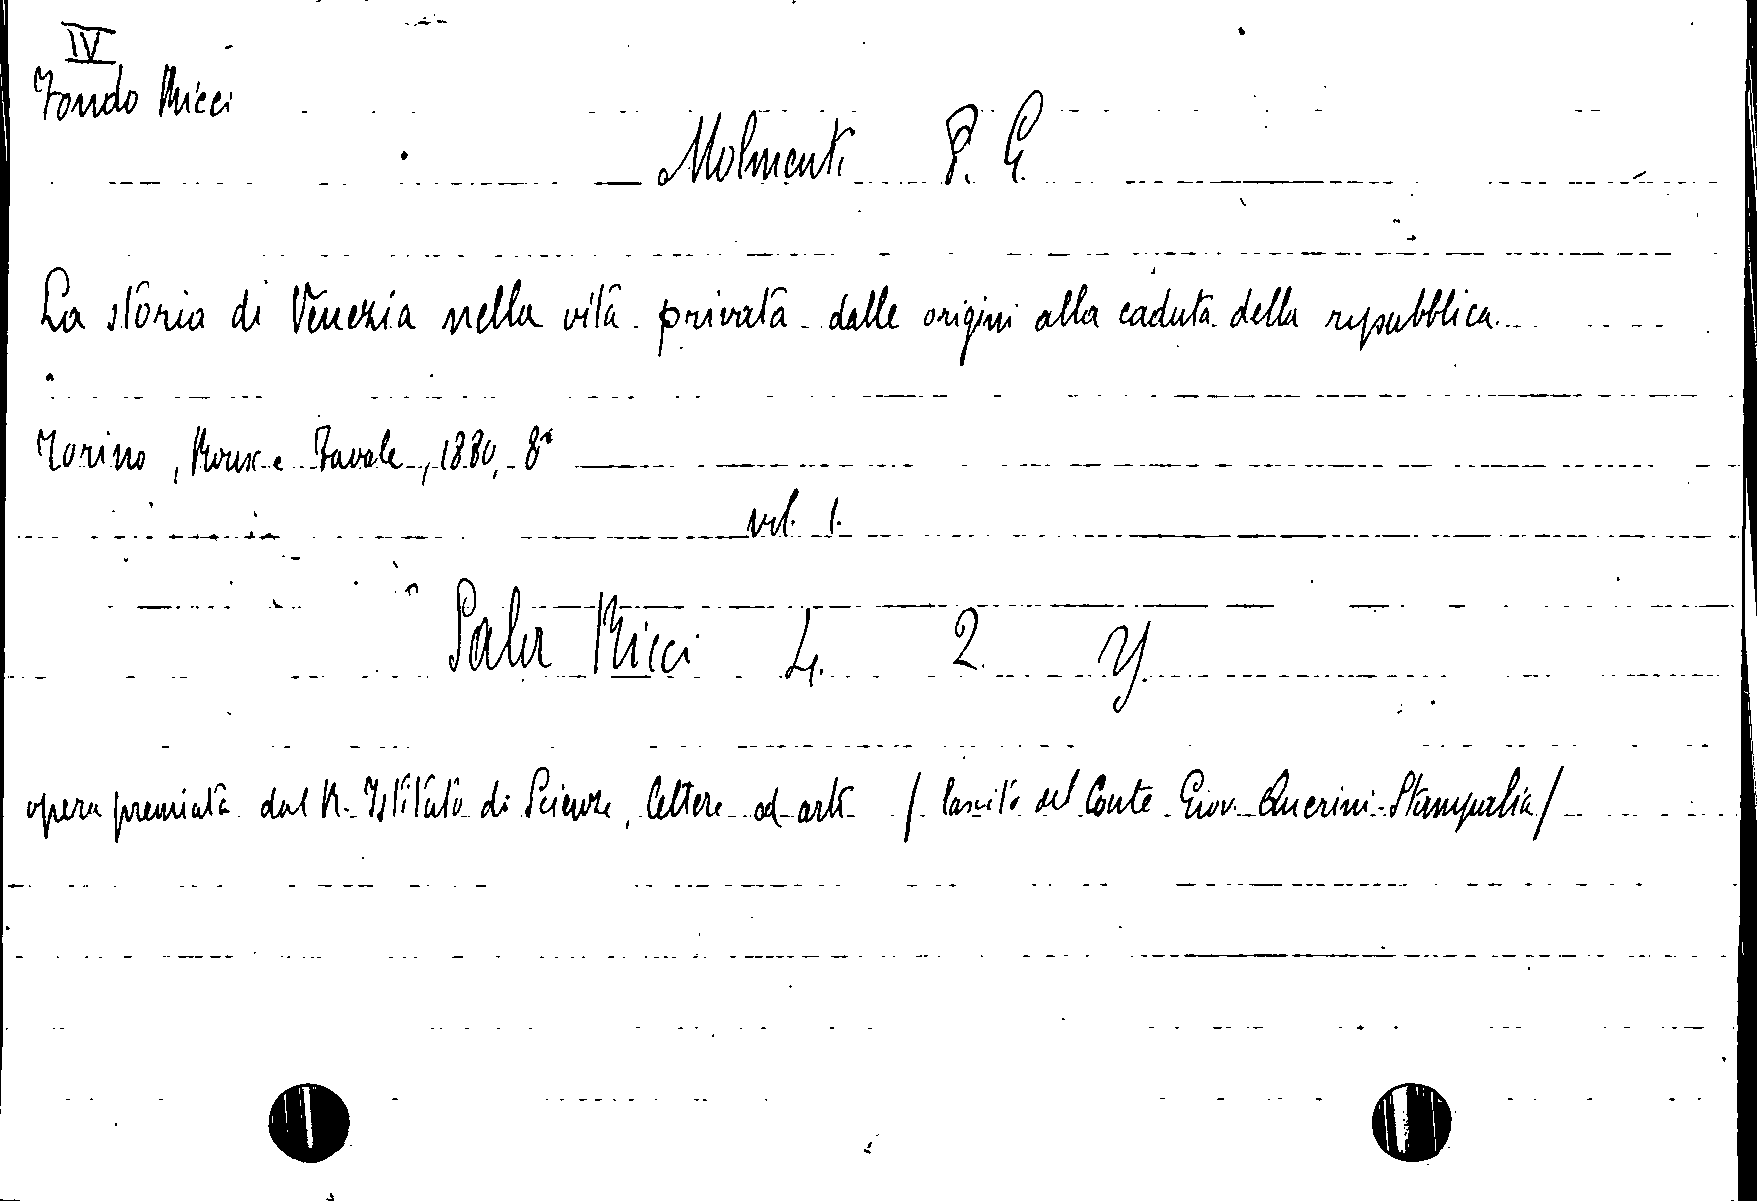 IV
Fondo Ricci
Molmenti P. G.
La storia di Venezia nella vita privata dalle origini alla caduta della repubblica.
Torino, Roux e Favale, 1880, 8°
vol. 1.
Sala Ricci 4. 2. Y.
opera premiata dal R. Istituto di Scienze, lettere ed arti / lascito del Conte Giov. Querini-Stampalia /